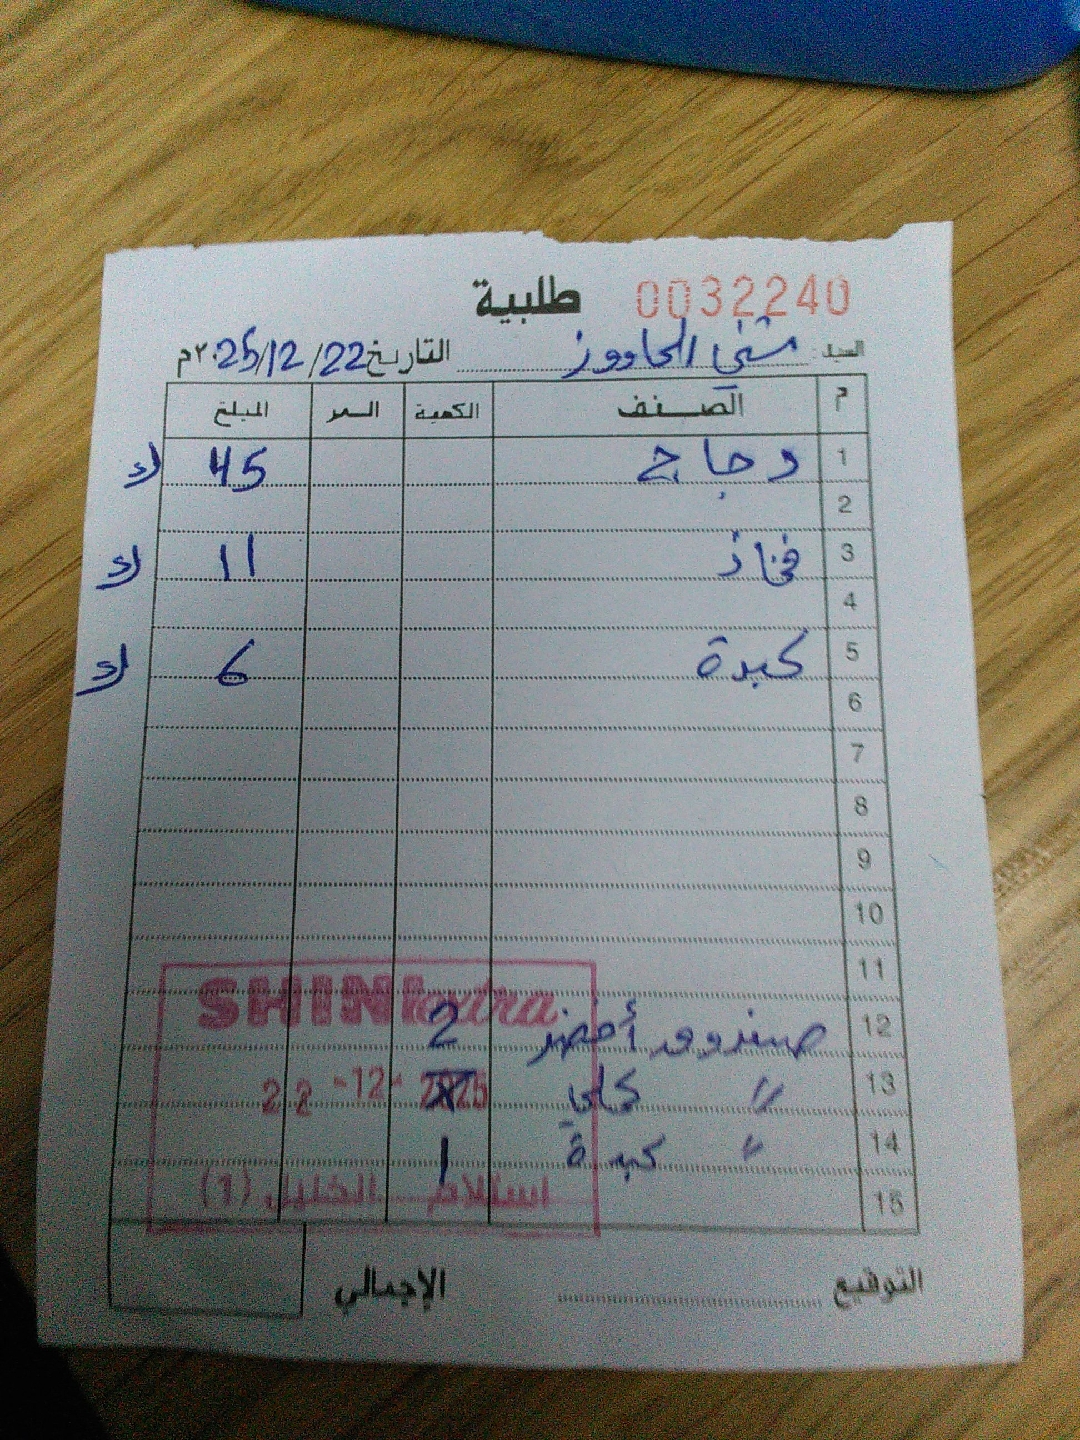 طلبية 0032240
السيد: مثنى الحاووز التاريخ 22/12/2025م
م الصنف الكمية السعر المبلغ
1 دجاج 45 ك
2
3 فخاذ 11 ك
4
5 كبدة 6 ك
6
7
8
9
10
11
SHINI extra
12 صندوق أخضر 2
13 " 
22 -12- 2025
14 " كبدة 1
15
استلام الخليل (1)
التوقيع الإجمالي